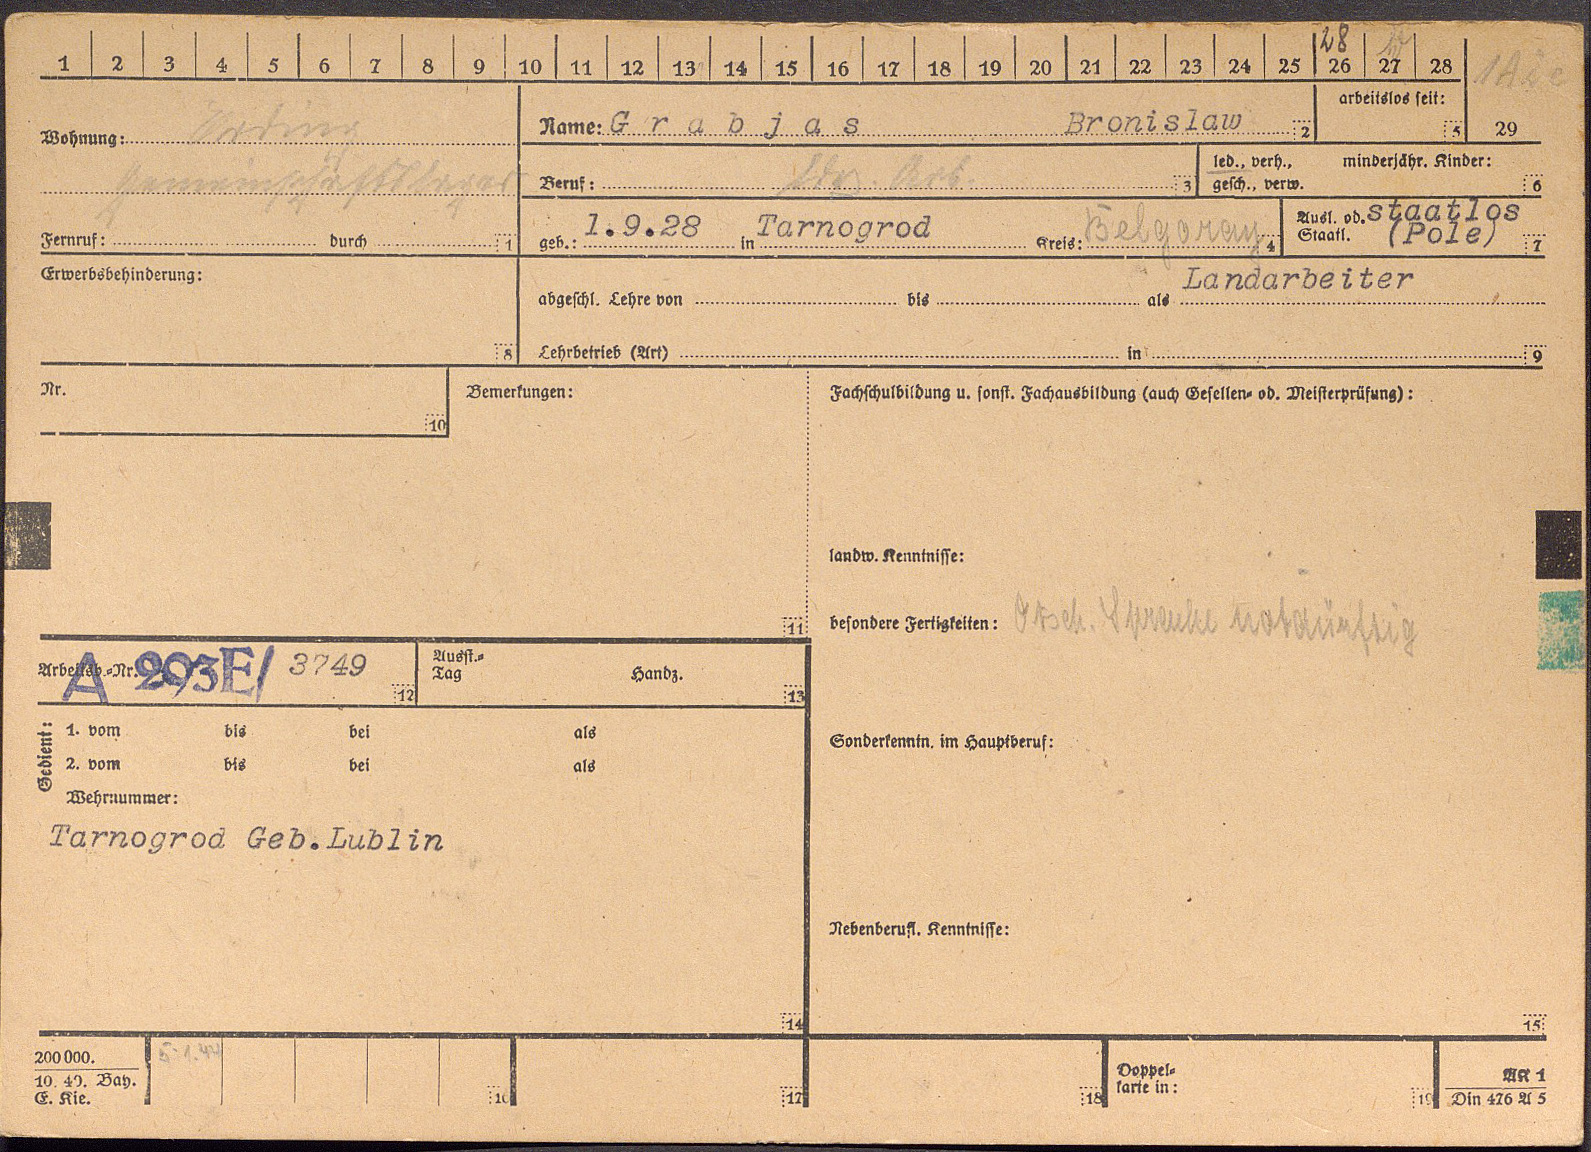 1 2 3 4 5 6 7 8 9 10 11 12 13 14 15 16 17 18 19 20 21 22 23 24 25 26 27 28
28
Wohnung:
Gemeinschaftslager
Fernruf: durch 1
Name: Grabjas Bronislaw 2
arbeitslos seit: 5
29
Beruf: Ldw. Arb. 3
led., verh., minderjähr. Kinder:
gesch., verw. 6
geb.: 1.9.28 in Tarnogrod Kreis: Belgoray 4
Ausl. od. staatlos
Staatl. (Pole) 7
Erwerbsbehinderung:
8
Landarbeiter
abgeschl. Lehre von bis als
Lehrbetrieb (Art) in 9
Nr.
10
Bemerkungen:
11
Fachschulbildung u. sonst. Fachausbildung (auch Gesellen- od. Meisterprüfung):
landw. Kenntnisse:
besondere Fertigkeiten: Dtsch. Sprache notdürftig
Sonderkenntn. im Hauptberuf:
Nebenberufl. Kenntnisse:
15
Arbeitsb.-Nr. A 293E/ 3749
12
Ausst.-
Tag Handz.
13
Gedient:
1. vom bis bei als
2. vom bis bei als
Wehrnummer:
Tarnogrod Geb.Lublin
14
200 000.
10. 40. Bay.
E. Kie.
5.1.44
16
17
18
Doppel-
karte in:
19
AK 1
Din 476 A 5